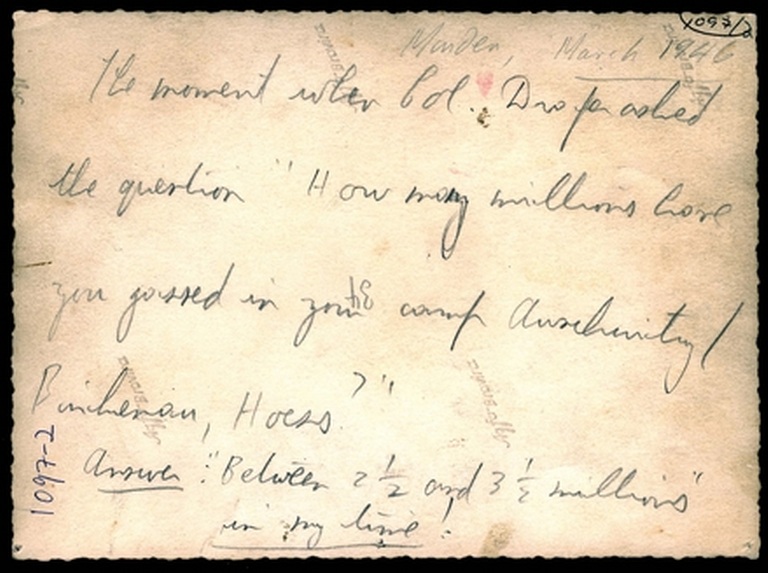 1097/2
Minden, March 1946
The moment when Col. Draper asked
the question "How many millions have
you gassed in your camp Auschwitz/
Birkenau, Hoess?"
Answer: "Between 2 1/2 and 3 1/2 millions"
in my time!
1097-2
Agfa-Brovira
Agfa-Brovira
Agfa-Brovira
Agfa-Brovira